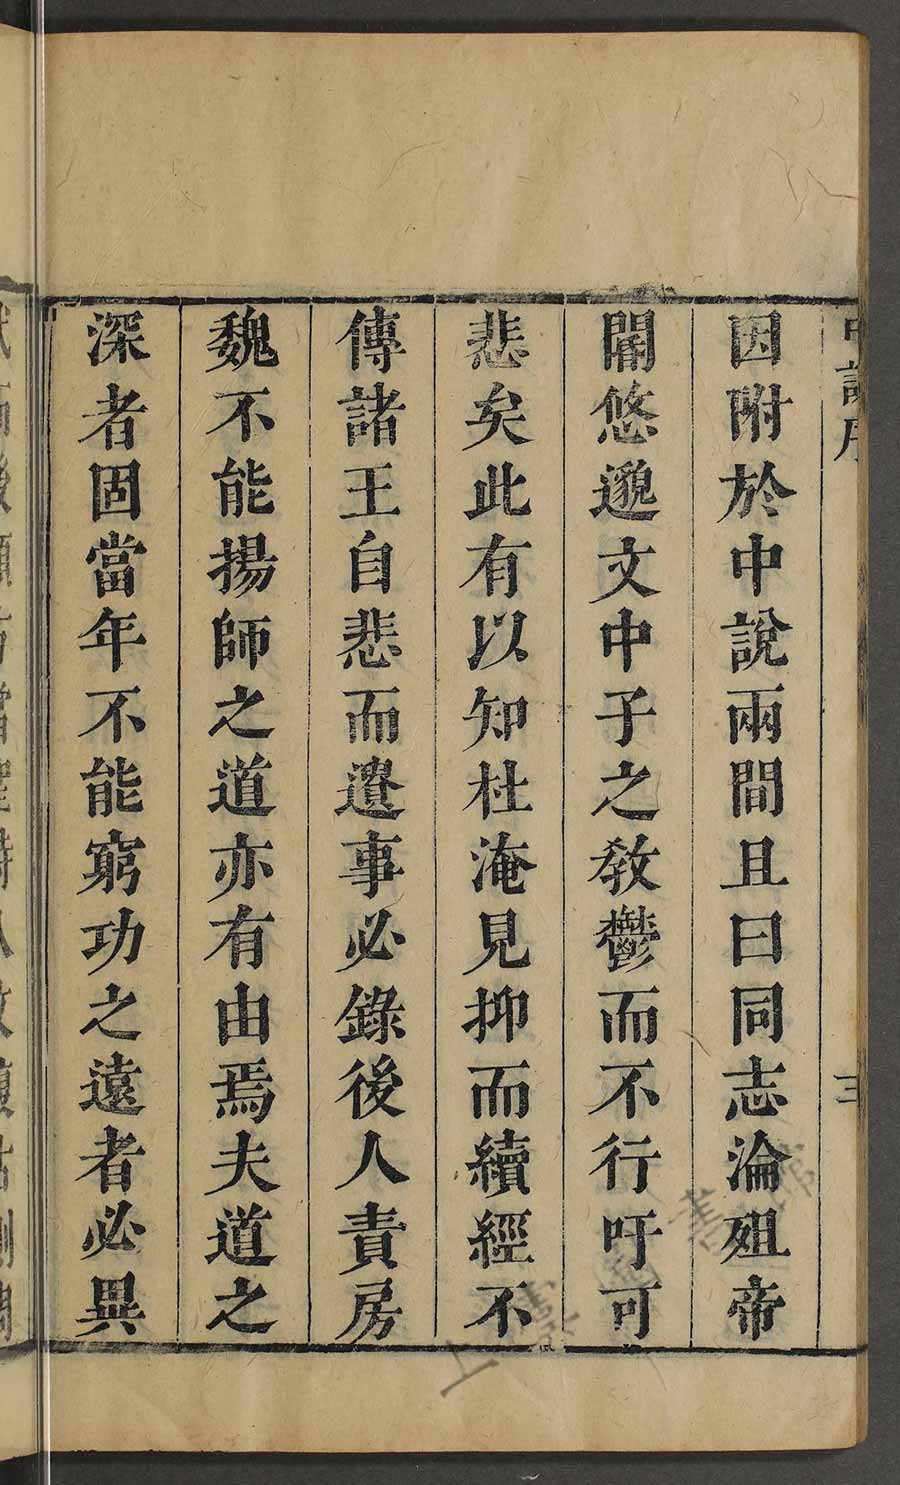 中說序
三
因附於中說兩間且曰同志淪殂帝
閽悠邈文中子之教鬱而不行吁可
悲矣此有以知杜淹見抑而續經不
傳諸王自悲而遺事必錄後人責房
魏不能揚師之道亦有由焉夫道之
深者固當年不能窮功之遠者必異